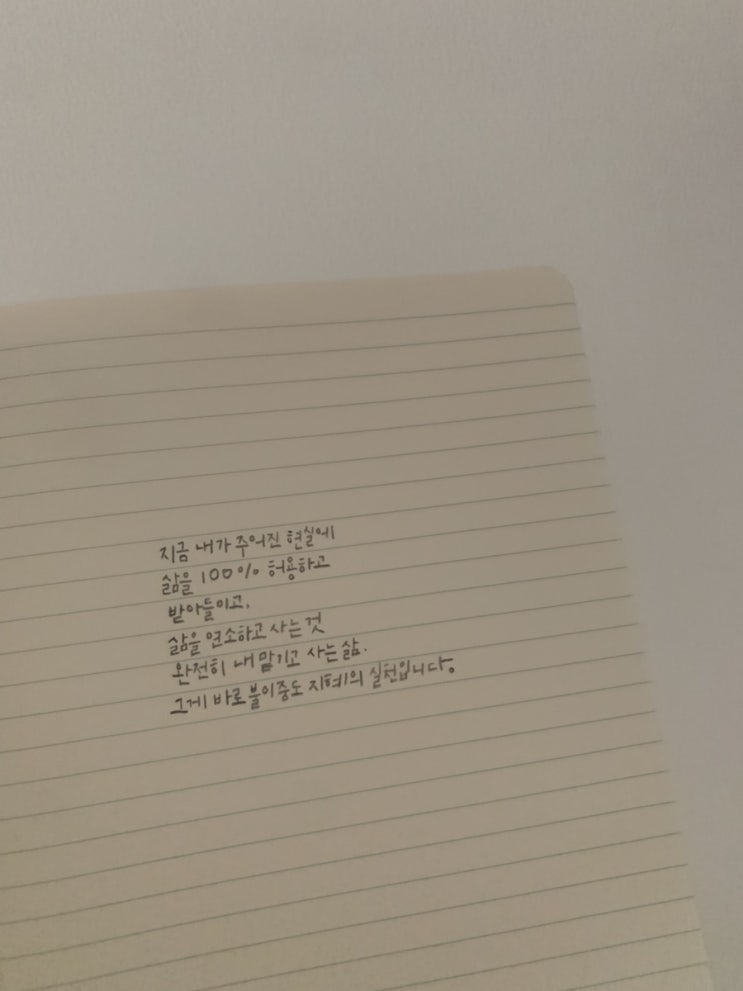 지금 내가 주어진 현실에
삶을 100% 허용하고
받아들이고,
삶을 연소하고 사는 것
완전히 내맡기고 사는 삶.
그게 바로 불이중도 지혜의 실천입니다.